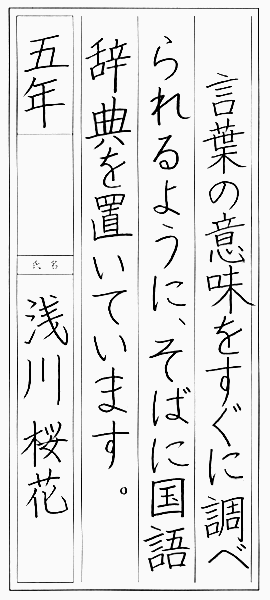 言葉の意味をすぐに調べ
られるように、そばに国語
辞典を置いています。
五年
氏名
浅川桜花